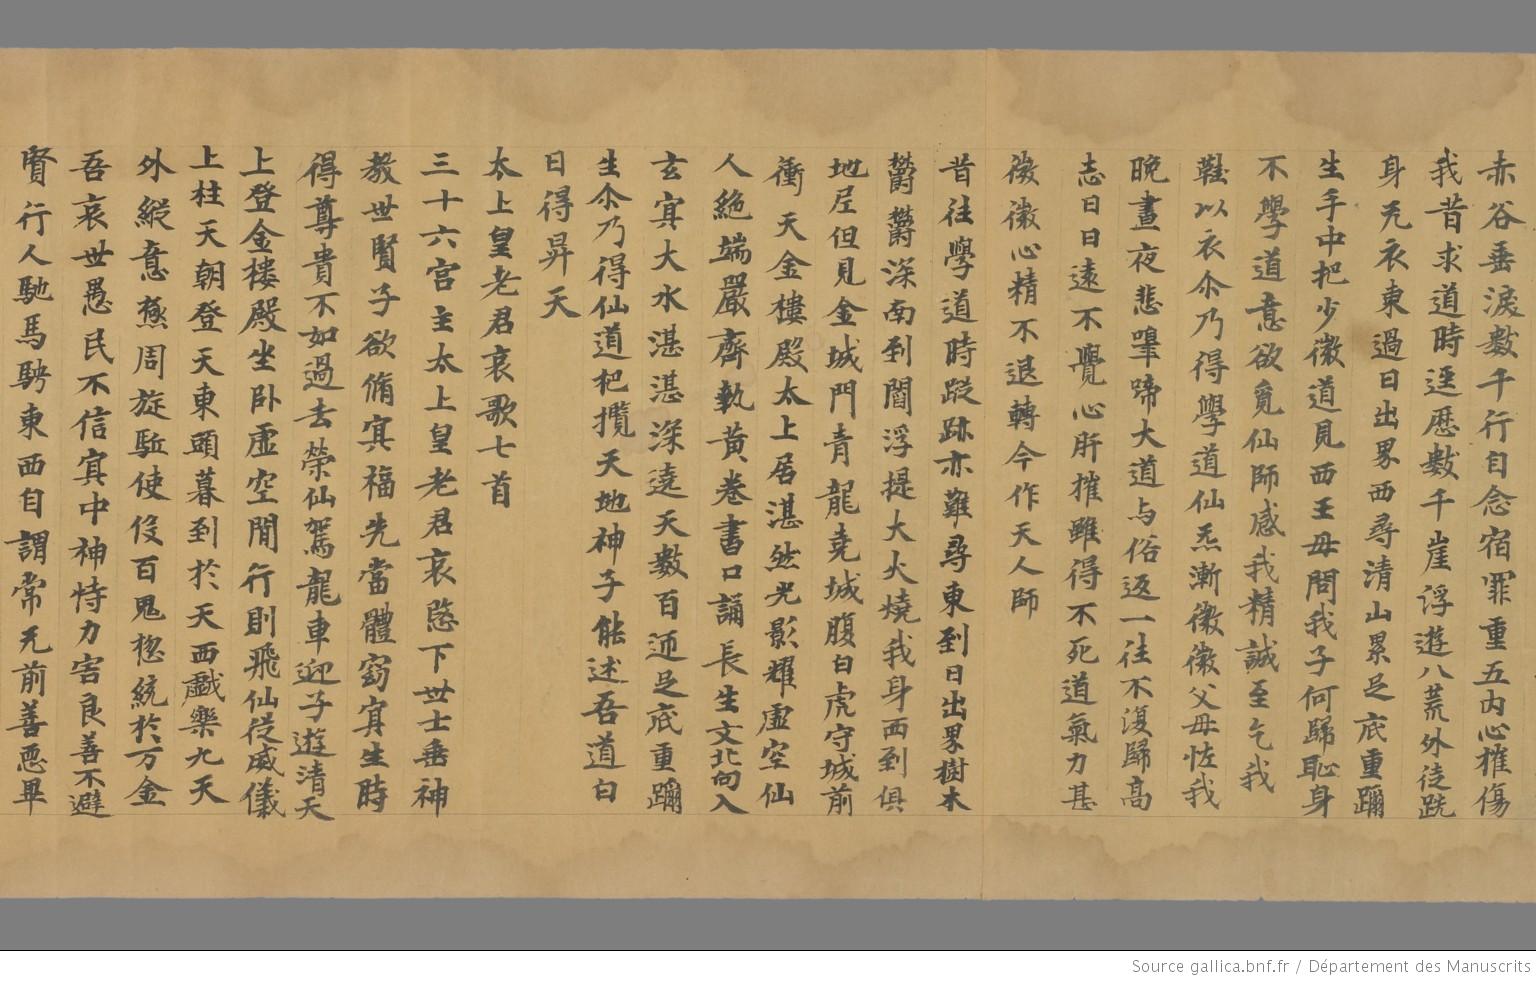 赤谷垂淚數千行自念宿罪重五内心摧傷
我昔求道時逕歷數千崖浮遊八荒外徒跣
身无衣東過日出界西尋清山累足底重蹦
生手中把少微道見西王母問我子何歸恥身
不學道意欲覓仙師感我精誠至乞我
鞋以衣尒乃得學道仙炁漸微微父母怪我
晚晝夜悲嘷啼大道与俗返一往不復歸高
志日日遠不覺心肝摧雖得不死道氣力甚
微微心精不退轉今作天人師
昔往學道時蹤跡亦難尋東到日出界樹木
欝欝深南到閻浮提大火燒我身西到俱
地尼但見金城門青龍堯城腹白虎守城前
衝天金樓殿太上居湛然光影耀虚空仙
人絶端嚴齊執黄卷書口誦長生文北向入
玄㝠大水湛湛深遶天數百迊足底重蹦
生尒乃得仙道杷攬天地神子能述吾道白
日得昇天
太上皇老君哀歌七首
三十六宫主太上皇老君哀愍下世士垂神
教世賢子欲脩㝠福先當體窈㝠生時
得尊貴不如過去榮仙駕龍車迎子遊清天
上登金樓殿坐卧虚空間行則飛仙從威儀
上柱天朝登天東頭暮到於天西戲樂九天
外縱意㷱周旋駈使伇百鬼揔統於万金
吾哀世愚民不信㝠中神恃力害良善不避
賢行人馳馬騁東西自謂常无前善惡畢
Source gallica.bnf.fr / Département des Manuscrits